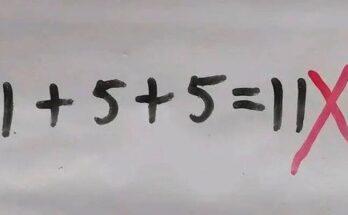 1 + 5 + 5 = 11 X